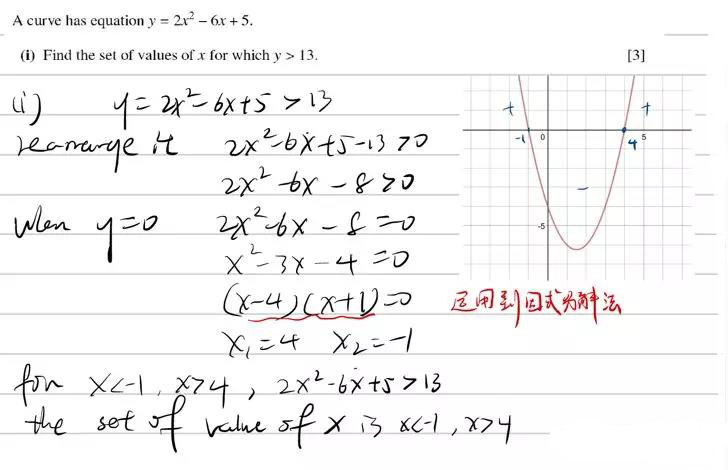 A curve has equation y = 2x² − 6x + 5.
(i) Find the set of values of x for which y > 13. [3]
(i) y = 2x²-6x+5 > 13
rearrange it 2x²-6x+5-13 > 0
2x²-6x-8 > 0
when y=0 2x²-6x-8=0
x²-3x-4=0
(x-4)(x+1)=0
x₁=4 x₂=-1
for x<-1, x>4, 2x²-6x+5>13
the set of value of x is x<-1, x>4
+ +
-1 0 4 5
−
-5
运用到因式分解法